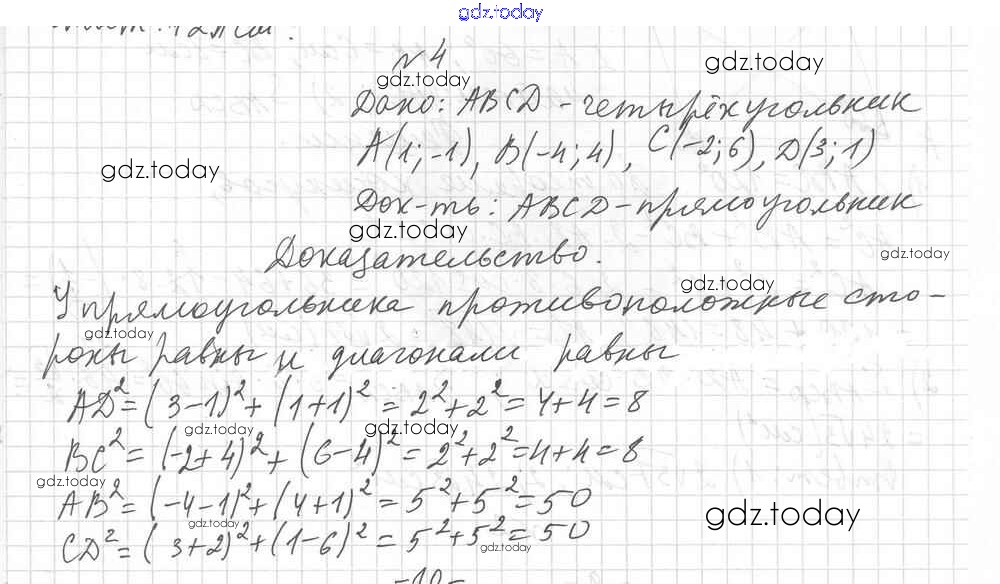 gdz.today
№ 4
gdz.today
gdz.today
Дано: ABCD - четырёхугольник
A(1; -1), B(-4; 4), C(-2; 6), D(3; 1)
gdz.today
Док-ть: ABCD - прямоугольник
gdz.today
Доказательство.
gdz.today
gdz.today
У прямоугольника противоположные сто-
gdz.today
роны равны и диагонали равны
AD² = (3-1)² + (1+1)² = 2² + 2² = 4 + 4 = 8
gdz.today gdz.today
BC² = (-2+4)² + (6-4)² = 2² + 2² = 4 + 4 = 8
gdz.today
AB² = (-4-1)² + (4+1)² = 5² + 5² = 50
gdz.today gdz.today
CD² = (3+2)² + (1-6)² = 5² + 5² = 50
gdz.today